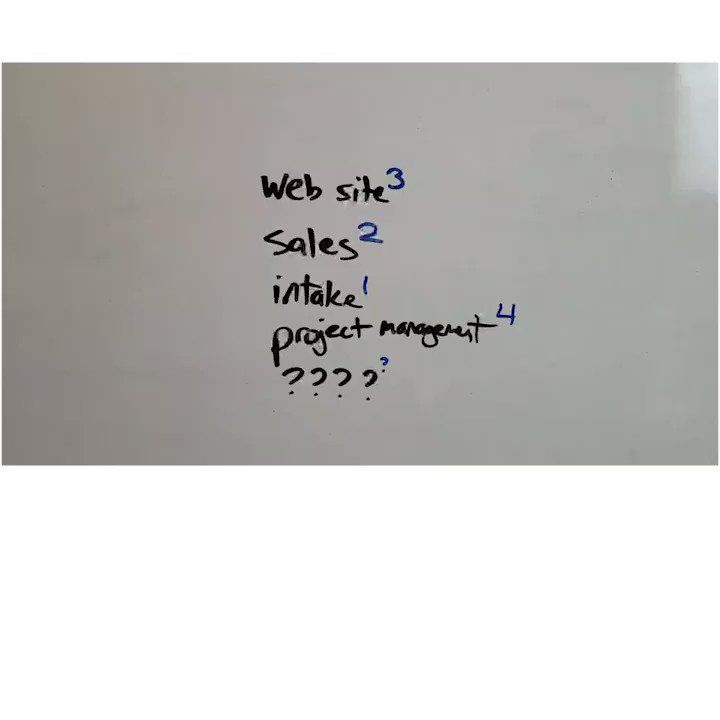 Web site 3
Sales 2
intake 1
project management 4
???? ?